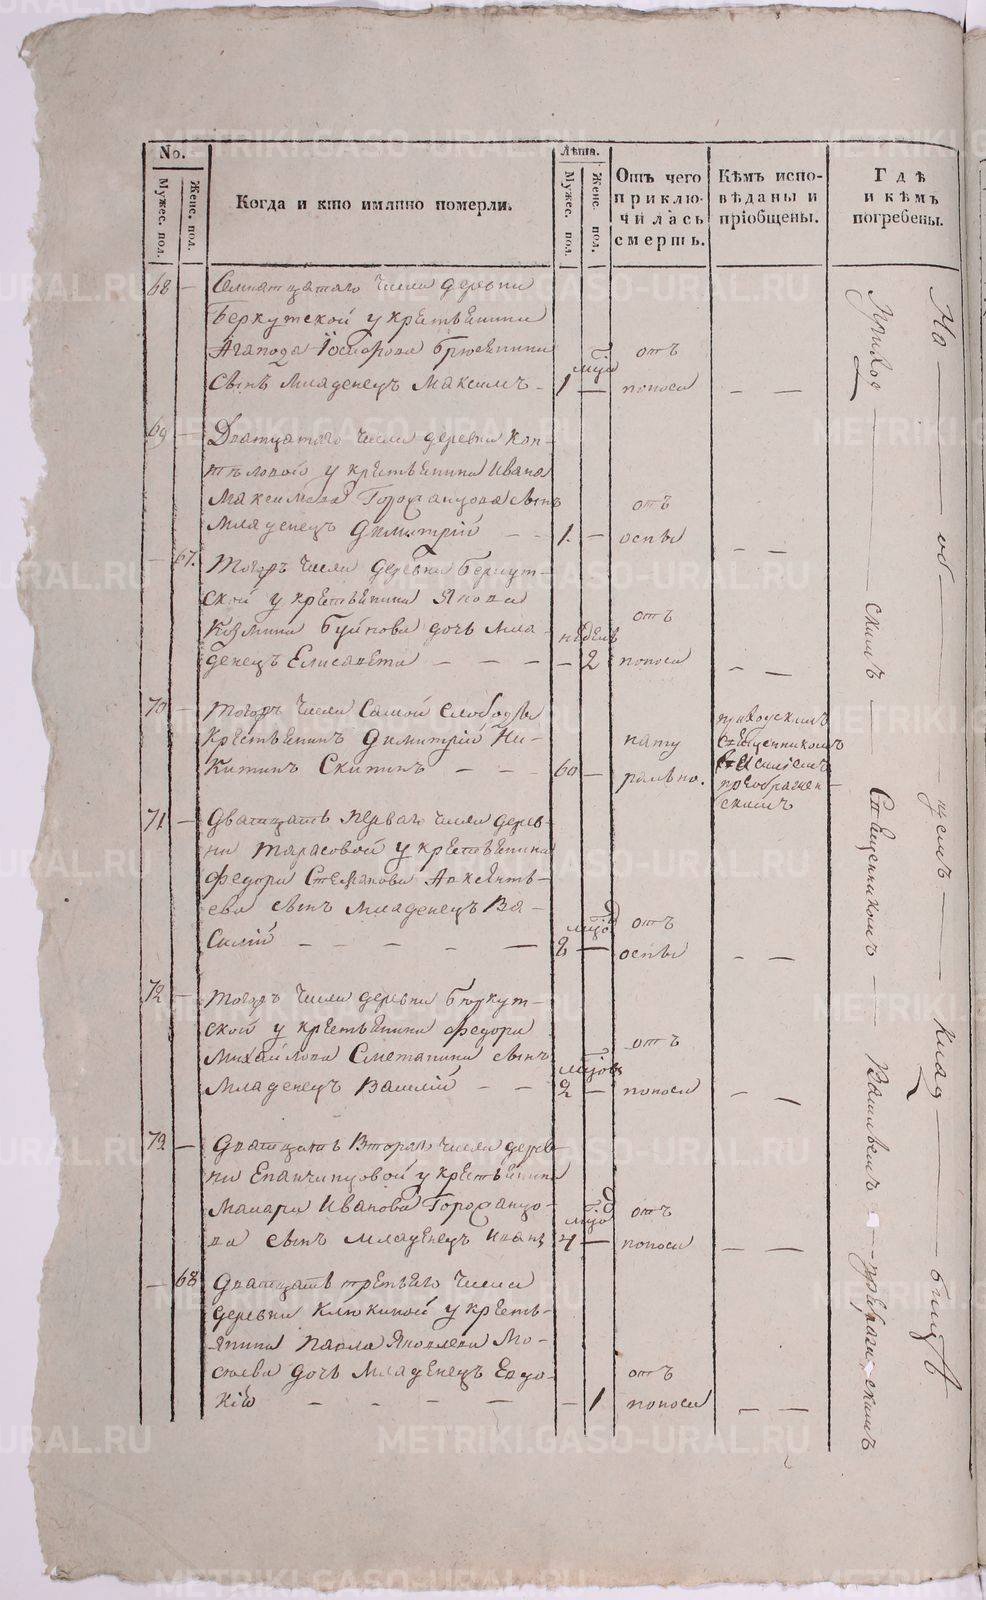 No.
Мужес. пол.
Женс. пол.
Когда и кто имянно померли.
Лѣта.
Мужес. пол.
Женс. пол.
Отъ чего
приклю-
чилась
смерть.
Кѣмъ испо-
вѣданы и
пріобщены.
Гдѣ
и кѣмъ
погребены.
68 — числа деревни
у крестьянина
Агапода
сынъ младенецъ Максимъ — 1 — отъ поноса — —
69 — Дватцатого числа деревни Коп-
тѣловой у крестьянина Ивана
Максимова сынъ
младенецъ Димитрій — — 1. — отъ оспы — —
— 67. Тогожъ числа деревни Беркут-
ской у крестьянина Якова
Козмина Буйнова дочь мла-
денецъ Елисавета — — — — недель 2 отъ поноса — —
70 — Тогожъ числа самой слободы
крестьянинъ Димитрій Ни-
китинъ Скитинъ — — 60 — нату
рально.
приходскимъ
священникомъ
Василіемъ
преображен-
скимъ
71 — Дватцать перваго числа дерев-
ни Тарасовой у крестьянина
Федора Стефанова Авксенть-
ева сынъ младенецъ Ва-
силій — — — — — 8 — отъ оспы — —
72 — Тогожъ числа деревни Беркут-
ской у крестьянина Федора
Михайлова Сметанина сынъ
младенецъ Василій — — 2 — отъ поноса — —
73. — Дватцать втораго числа дерев-
ни Епанчинцовой у крестьянина
Макара Иванова
сынъ младенецъ Иванъ 4 — отъ поноса — —
— 68 Дватцать третьяго числа
деревни Клюкиной у кресть-
янина Павла Яковлева Мо-
сеева дочь младенецъ Евдо-
кія — — — — — 1 отъ поноса — —
На — об — щемъ — клад — бищѣ
Приход — скимъ — Священникомъ — Васильемъ — преображенскимъ
METRIKI.GASO-URAL.RU